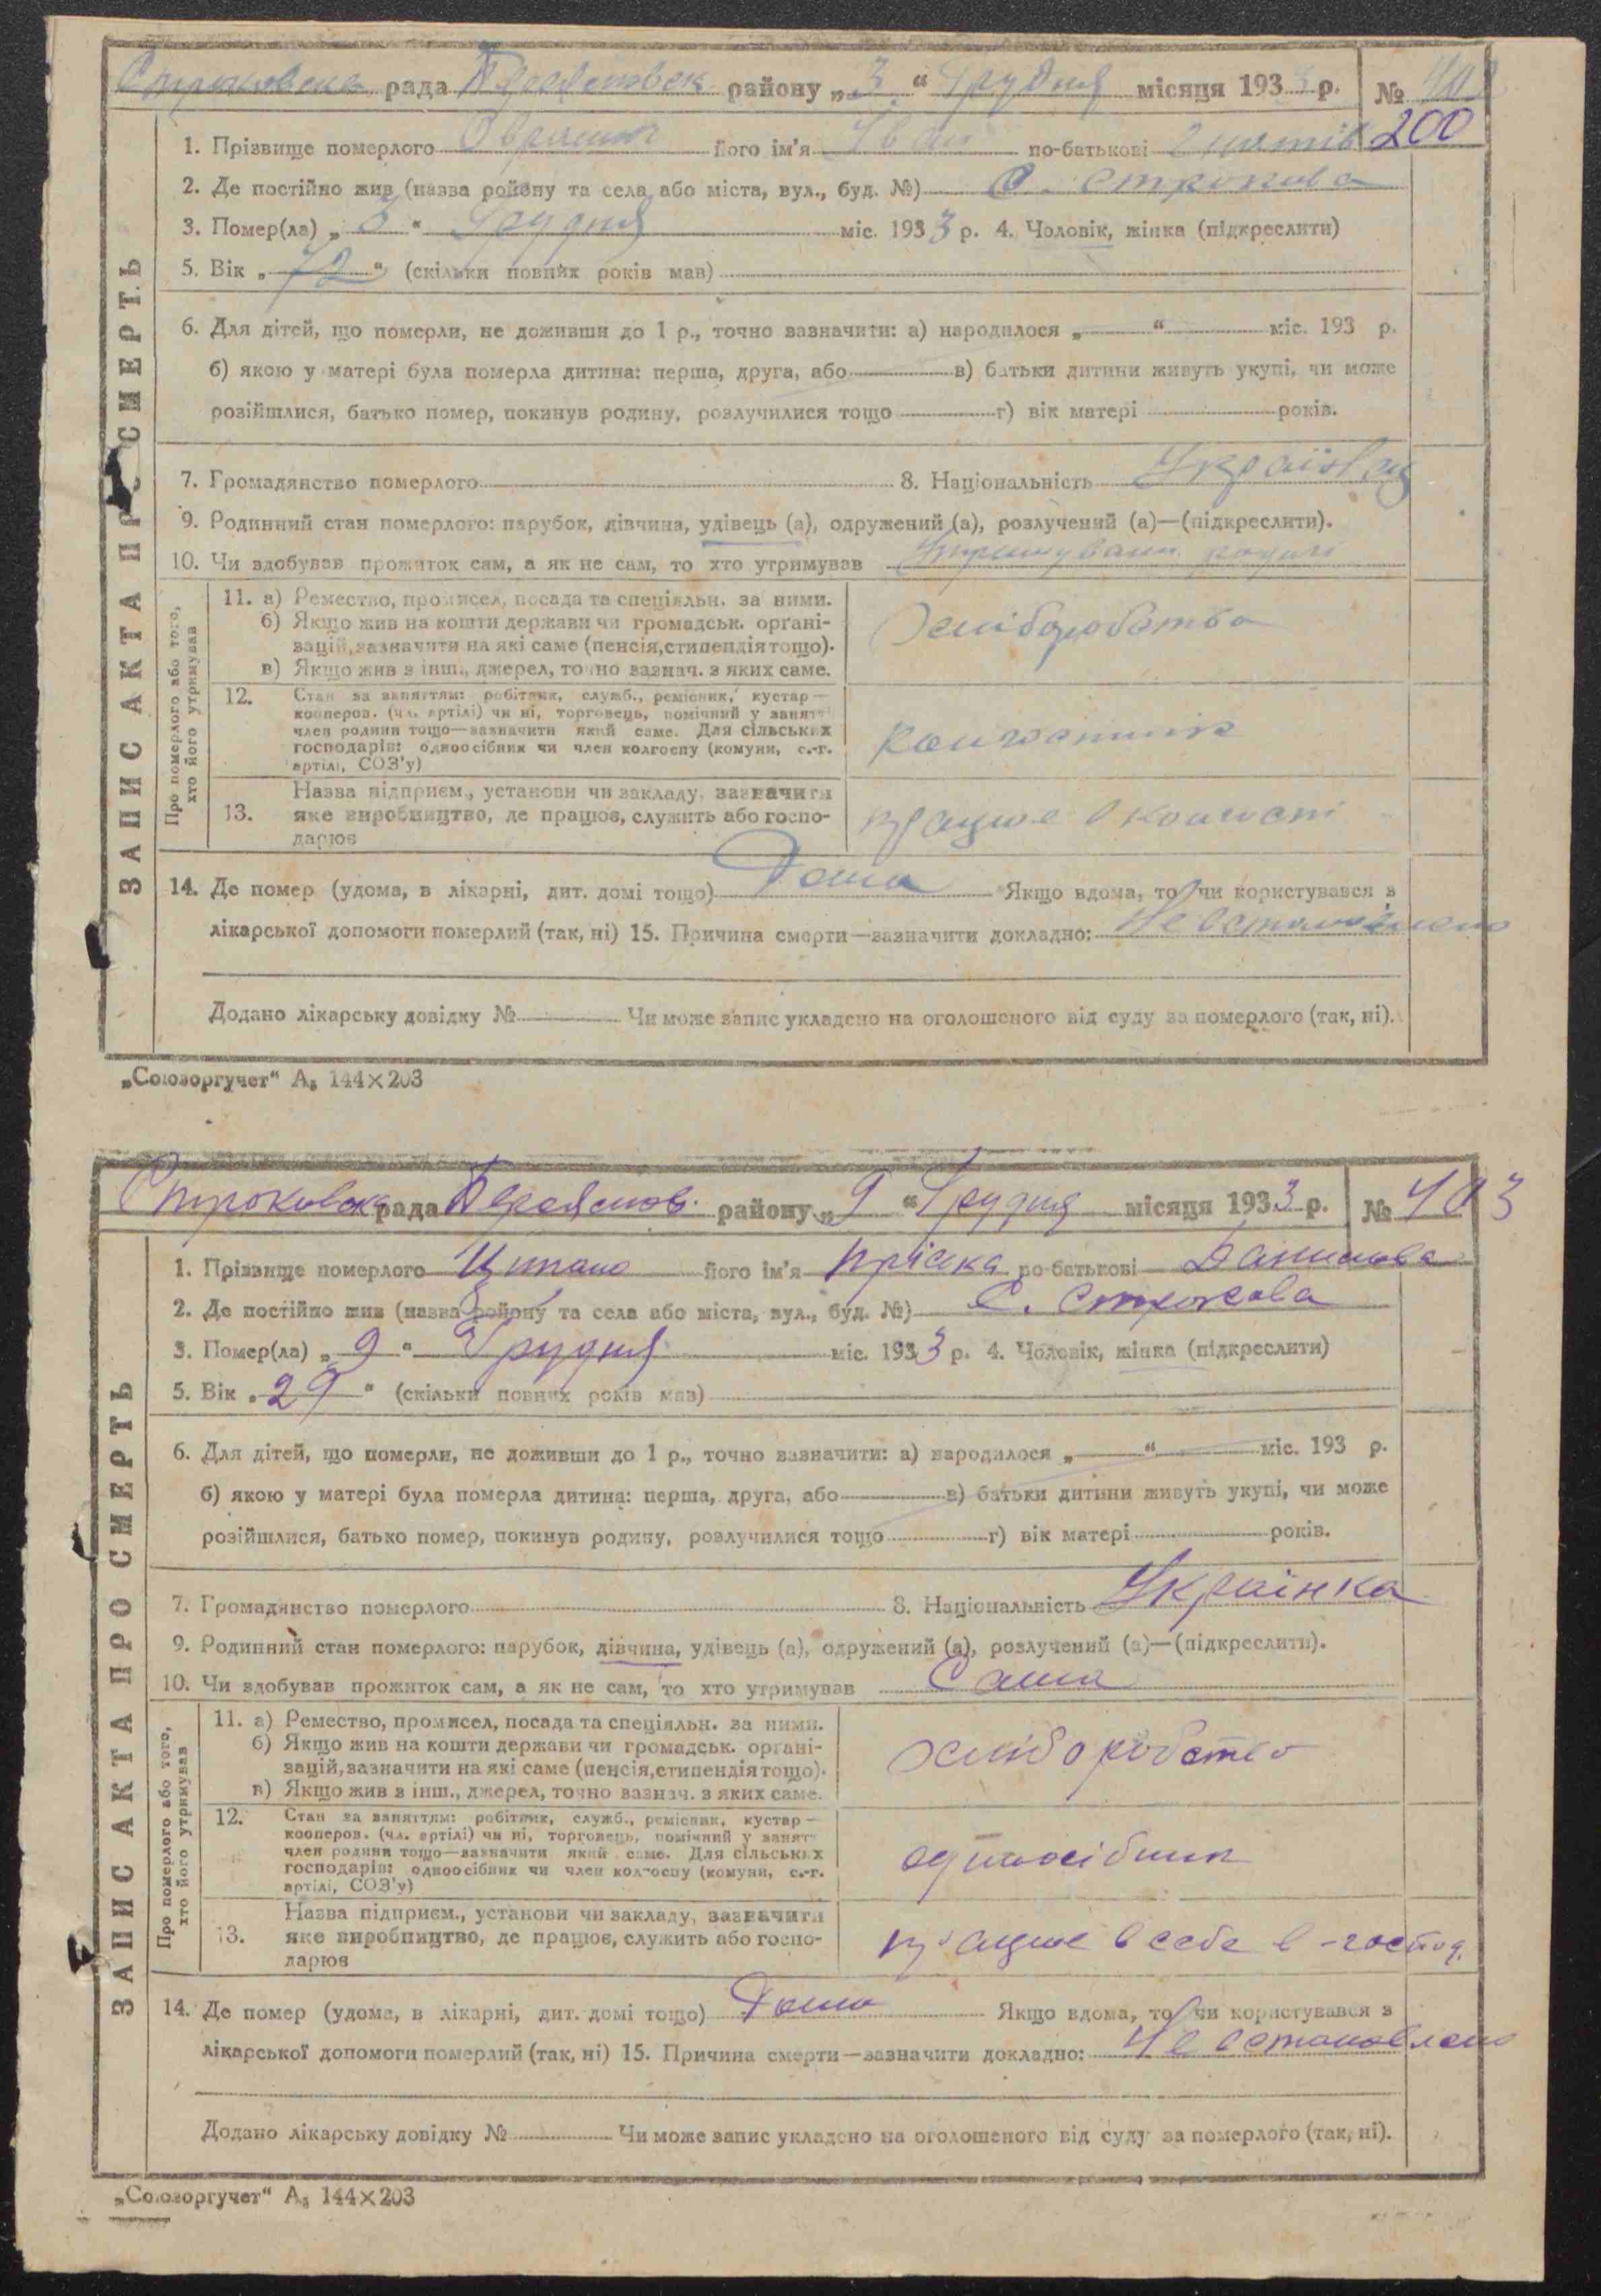 Строковска рада Переяславск району „3“ Грудня місяця 1933 р. № 402
200
1. Прізвище померлого його ім'я Іван по-батькові
2. Де постійно жив (назва району та села або міста, вул., буд. №) С. Строкова
3. Помер(ла) „3“ Грудня міс. 1933 р. 4. Чоловік, жінка (підкреслити)
5. Вік „72“ (скільки повних років мав)
6. Для дітей, що померли, не доживши до 1 р., точно зазначити: а) народилося „ “ міс. 193 р.
б) якою у матері була померла дитина: перша, друга, або в) батьки дитини живуть укупі, чи може
розійшлися, батько помер, покинув родину, розлучилися тощо г) вік матері років.
7. Громадянство померлого 8. Національність Українец
9. Родинний стан померлого: парубок, дівчина, удівець (а), одружений (а), розлучений (а)—(підкреслити).
10. Чи здобував прожиток сам, а як не сам, то хто утримував
ЗАПИС АКТА ПРО СМЕРТЬ
Про померлого або того, хто його утримував
11. а) Ремество, промисел, посада та спеціяльн. за ними.
б) Якщо жив на кошти держави чи громадськ. органі-
зацій, зазначити на які саме (пенсія, стипендія тощо).
в) Якщо жив з інш., джерел, точно зазнач. з яких саме.
Хліборобство
12. Стан за заняттям: робітник, служб., ремісник, кустар—
кооперов. (чл. артілі) чи ні, торговець, помічний у занят
член родини тощо—зазначити який саме. Для сільських
господарів: одноосібник чи член колгоспу (комуни, с.-г.
артілі, СОЗ'у)
колгоспник
13. Назва підприєм., установи чи закладу, зазначити
яке виробництво, де працює, служить або госпо-
дарює
працює в колгоспі
14. Де помер (удома, в лікарні, дит. домі тощо) Дома Якщо вдома, то чи користувався з
лікарської допомоги померлий (так, ні) 15. Причина смерти—зазначити докладно: Не встановлено
Додано лікарську довідку № Чи може запис укладено на оголошеного від суду за померлого (так, ні).
„Союзоргучет“ А₅ 144×203
Строковска рада Переяслов. району „9“ Грудня місяця 1933 р. № 403
1. Прізвище померлого його ім'я Пріська по-батькові Данилова
2. Де постійно жив (назва району та села або міста, вул., буд. №) С. Строкова
3. Помер(ла) „9“ Грудня міс. 1933 р. 4. Чоловік, жінка (підкреслити)
5. Вік „29“ (скільки повних років мав)
6. Для дітей, що померли, не доживши до 1 р., точно зазначити: а) народилося „ “ міс. 193 р.
б) якою у матері була померла дитина: перша, друга, або в) батьки дитини живуть укупі, чи може
розійшлися, батько помер, покинув родину, розлучилися тощо г) вік матері років.
7. Громадянство померлого 8. Національність Українка
9. Родинний стан померлого: парубок, дівчина, удівець (а), одружений (а), розлучений (а)—(підкреслити).
10. Чи здобував прожиток сам, а як не сам, то хто утримував Сама
ЗАПИС АКТА ПРО СМЕРТЬ
Про померлого або того, хто його утримував
11. а) Ремество, промисел, посада та спеціяльн. за ними.
б) Якщо жив на кошти держави чи громадськ. органі-
зацій, зазначити на які саме (пенсія, стипендія тощо).
в) Якщо жив з інш., джерел, точно зазнач. з яких саме.
хліборобство
12. Стан за заняттям: робітник, служб., ремісник, кустар—
кооперов. (чл. артілі) чи ні, торговець, помічний у занят
член родини тощо—зазначити який саме. Для сільських
господарів: одноосібник чи член колгоспу (комуни, с.-г.
артілі, СОЗ'у)
одноосібник
13. Назва підприєм., установи чи закладу, зазначити
яке виробництво, де працює, служить або госпо-
дарює
працює в себе в -господ.
14. Де помер (удома, в лікарні, дит. домі тощо) Дома Якщо вдома, то чи користувався з
лікарської допомоги померлий (так, ні) 15. Причина смерти—зазначити докладно: Не встановлено
Додано лікарську довідку № Чи може запис укладено на оголошеного від суду за померлого (так, ні).
„Союзоргучет“ А₅ 144×203